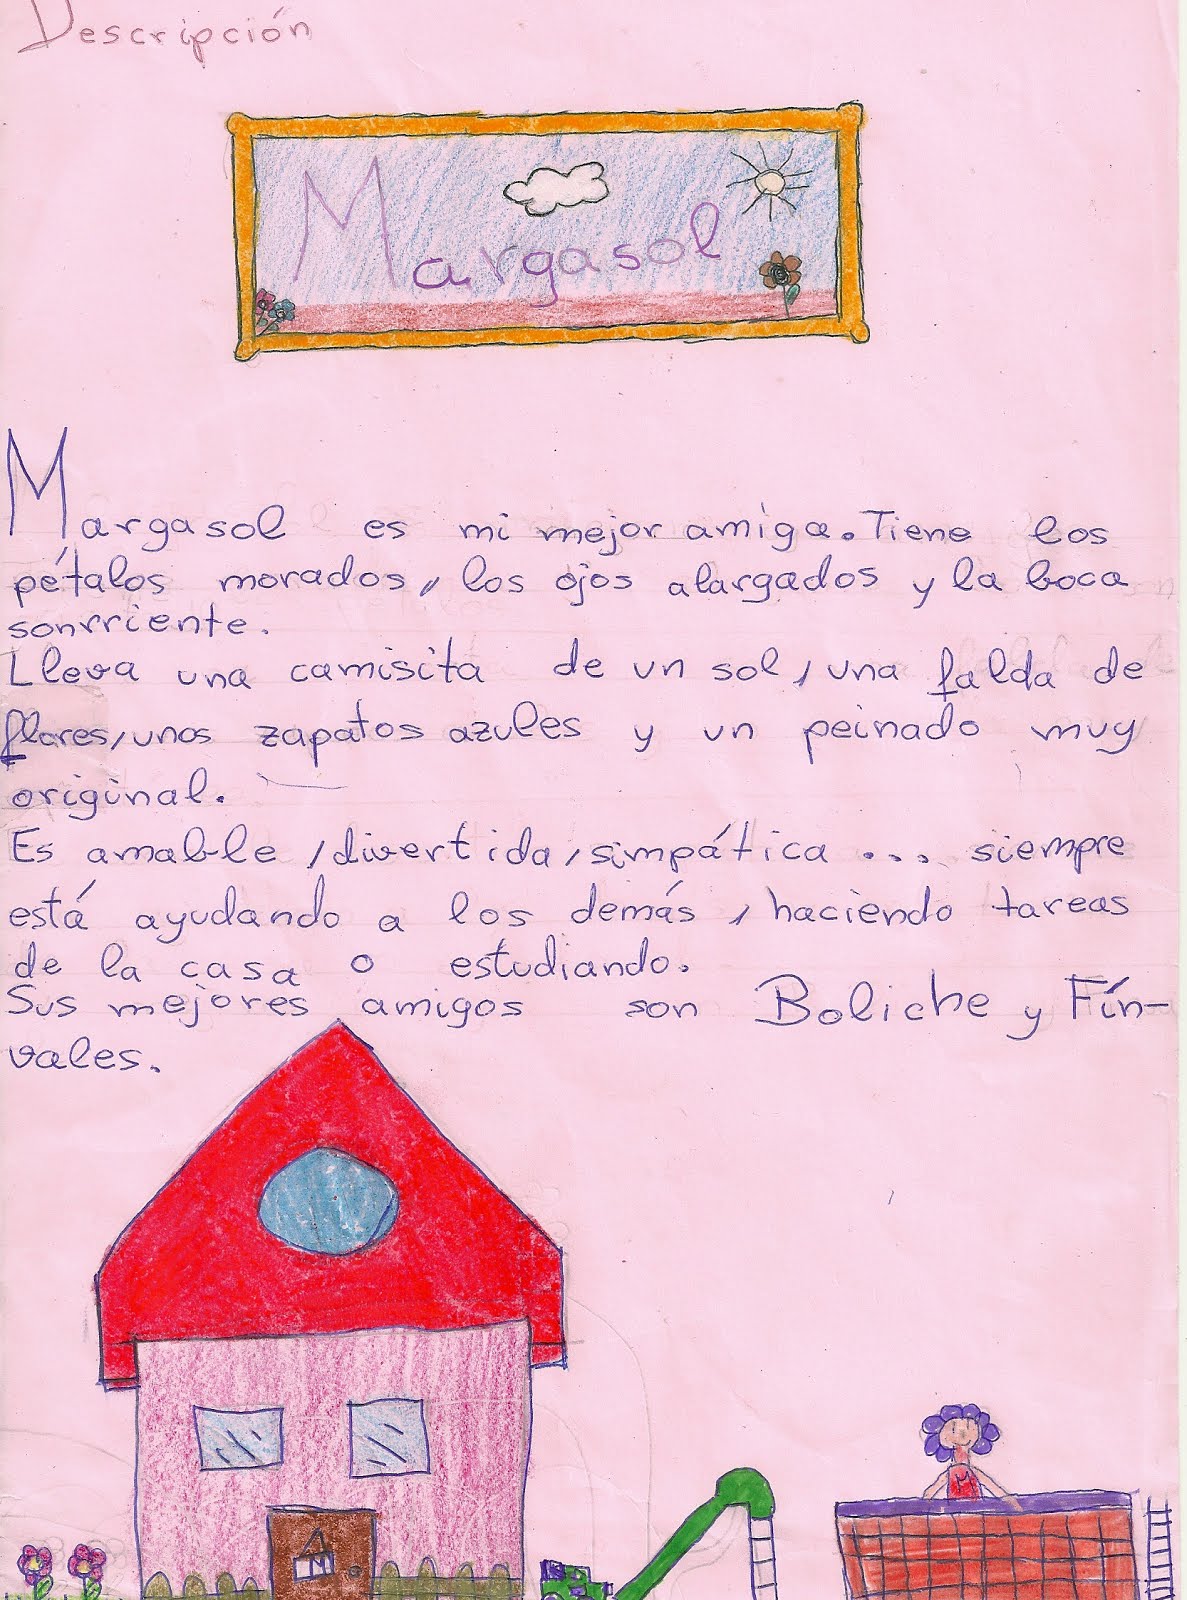 Descripción
Margasol
Margasol es mi mejor amiga. Tiene los
pétalos morados, los ojos alargados y la boca
sonrriente.
Lleva una camisita de un sol, una falda de
flores, unos zapatos azules y un peinado muy
original.
Es amable, divertida, simpática ... siempre
está ayudando a los demás, haciendo tareas
de la casa o estudiando.
Sus mejores amigos son Boliche y Fín-
vales.
M
M